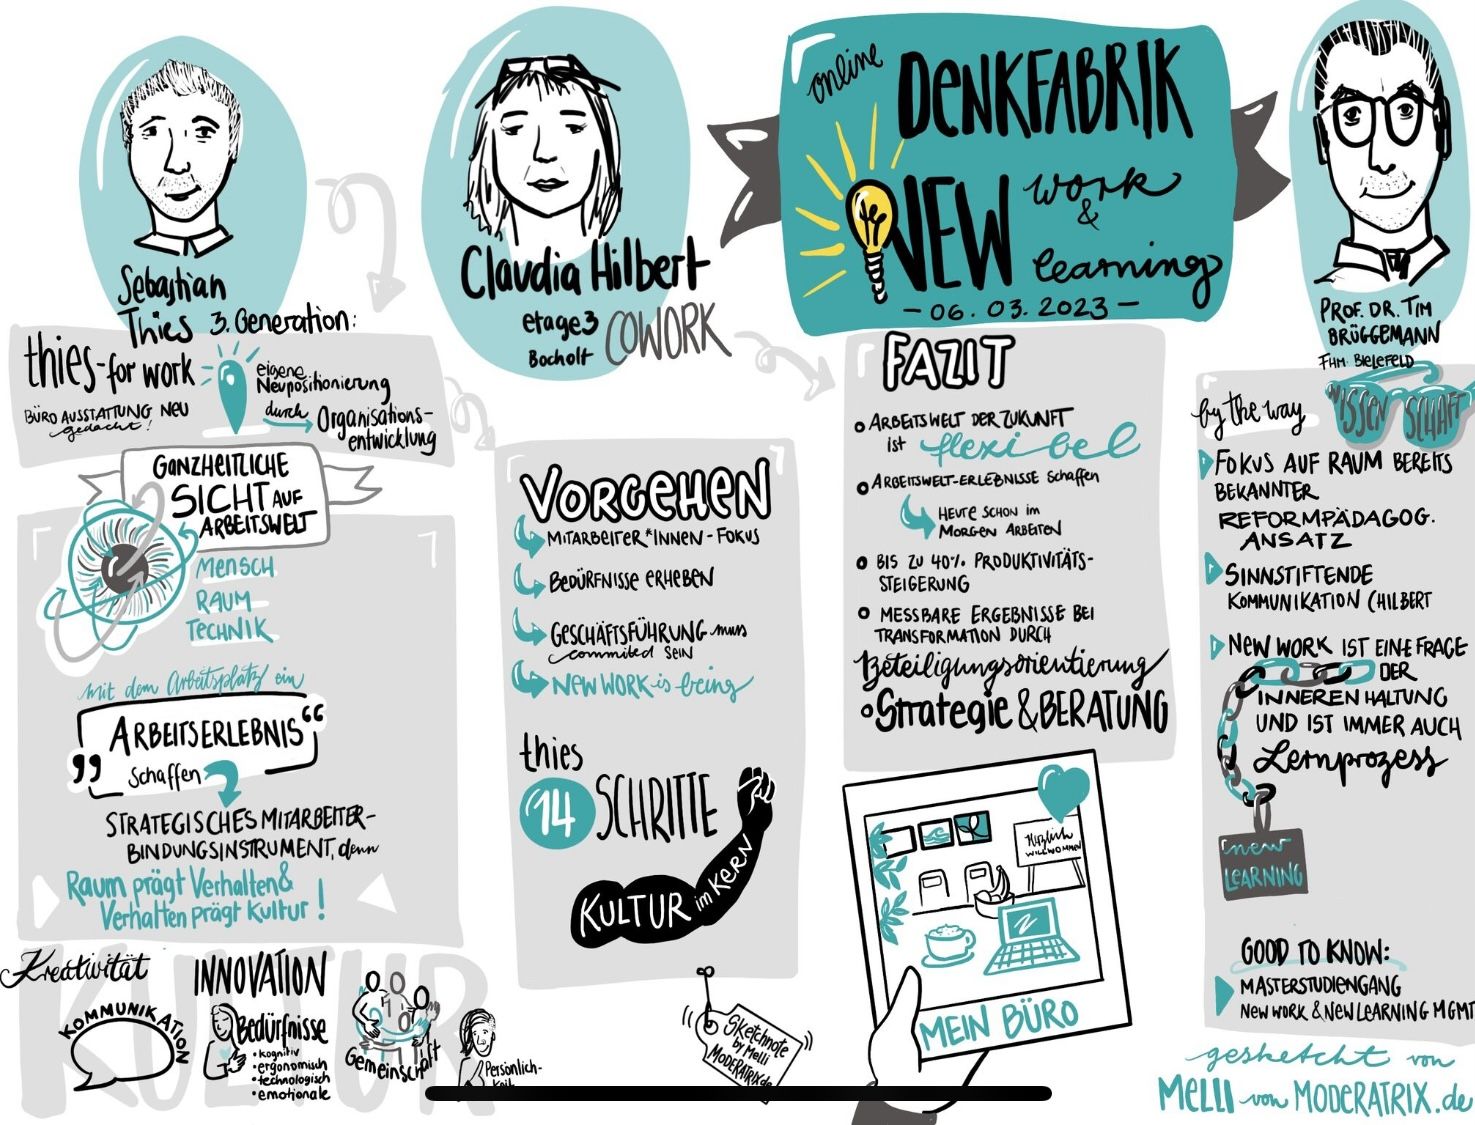 online
DENKFABRIK
NEW work
&
learning
- 06. 03. 2023 -
Sebastian
Thies
3. Generation:
thies-for work
BÜRO AUSSTATTUNG NEU
gedacht!
eigene
Neupositionierung
durch
Organisations-
entwicklung
GANZHEITLICHE
SICHT AUF
ARBEITSWELT
MENSCH
RAUM
TECHNIK
mit dem Arbeitsplatz ein
„ARBEITSERLEBNIS“
schaffen
STRATEGISCHES MITARBEITER-
BINDUNGSINSTRUMENT, denn
Raum prägt Verhalten &
Verhalten prägt Kultur!
KULTUR
Kreativität
KOMMUNIKATION
INNOVATION
Bedürfnisse
• kognitiv
• ergonomisch
• technologisch
• emotionale
Gemeinschaft
Persönlich-
keit
Claudia Hilbert
etage3
Bocholt
COWORK
VORGEHEN
MITARBEITER*INNEN-FOKUS
BEDÜRFNISSE ERHEBEN
GESCHÄFTSFÜHRUNG muss
commited SEIN
NEW WORK is being
thies
14 SCHRITTE
KULTUR im KERN
Sketchnote
by Melli
MODERATRIX.de
FAZIT
ARBEITSWELT DER ZUKUNFT
ist flexibel
ARBEITSWELT-ERLEBNISSE schaffen
HEUTE SCHON im
MORGEN ARBEITEN
BIS ZU 40% PRODUKTIVITÄTS-
STEIGERUNG
MESSBARE ERGEBNISSE BEI
TRANSFORMATION DURCH
Beteiligungsorientierung
Strategie & BERATUNG
Herzlich
WILLKOMMEN
MEIN BÜRO
PROF. DR. TIM
BRÜGGEMANN
FHM BIELEFELD
by the way
WISSEN SCHAFT
FOKUS AUF RAUM BEREITS
BEKANNTER
REFORMPÄDAGOG.
ANSATZ
SINNSTIFTENDE
KOMMUNIKATION (HILBERT
NEW WORK IST EINE FRAGE
DER
INNEREN HALTUNG
UND IST IMMER AUCH
Lernprozess
new
LEARNING
GOOD TO KNOW:
MASTERSTUDIENGANG
NEW WORK & NEW LEARNING MGMT
gesketcht von
MELLI von MODERATRIX.de